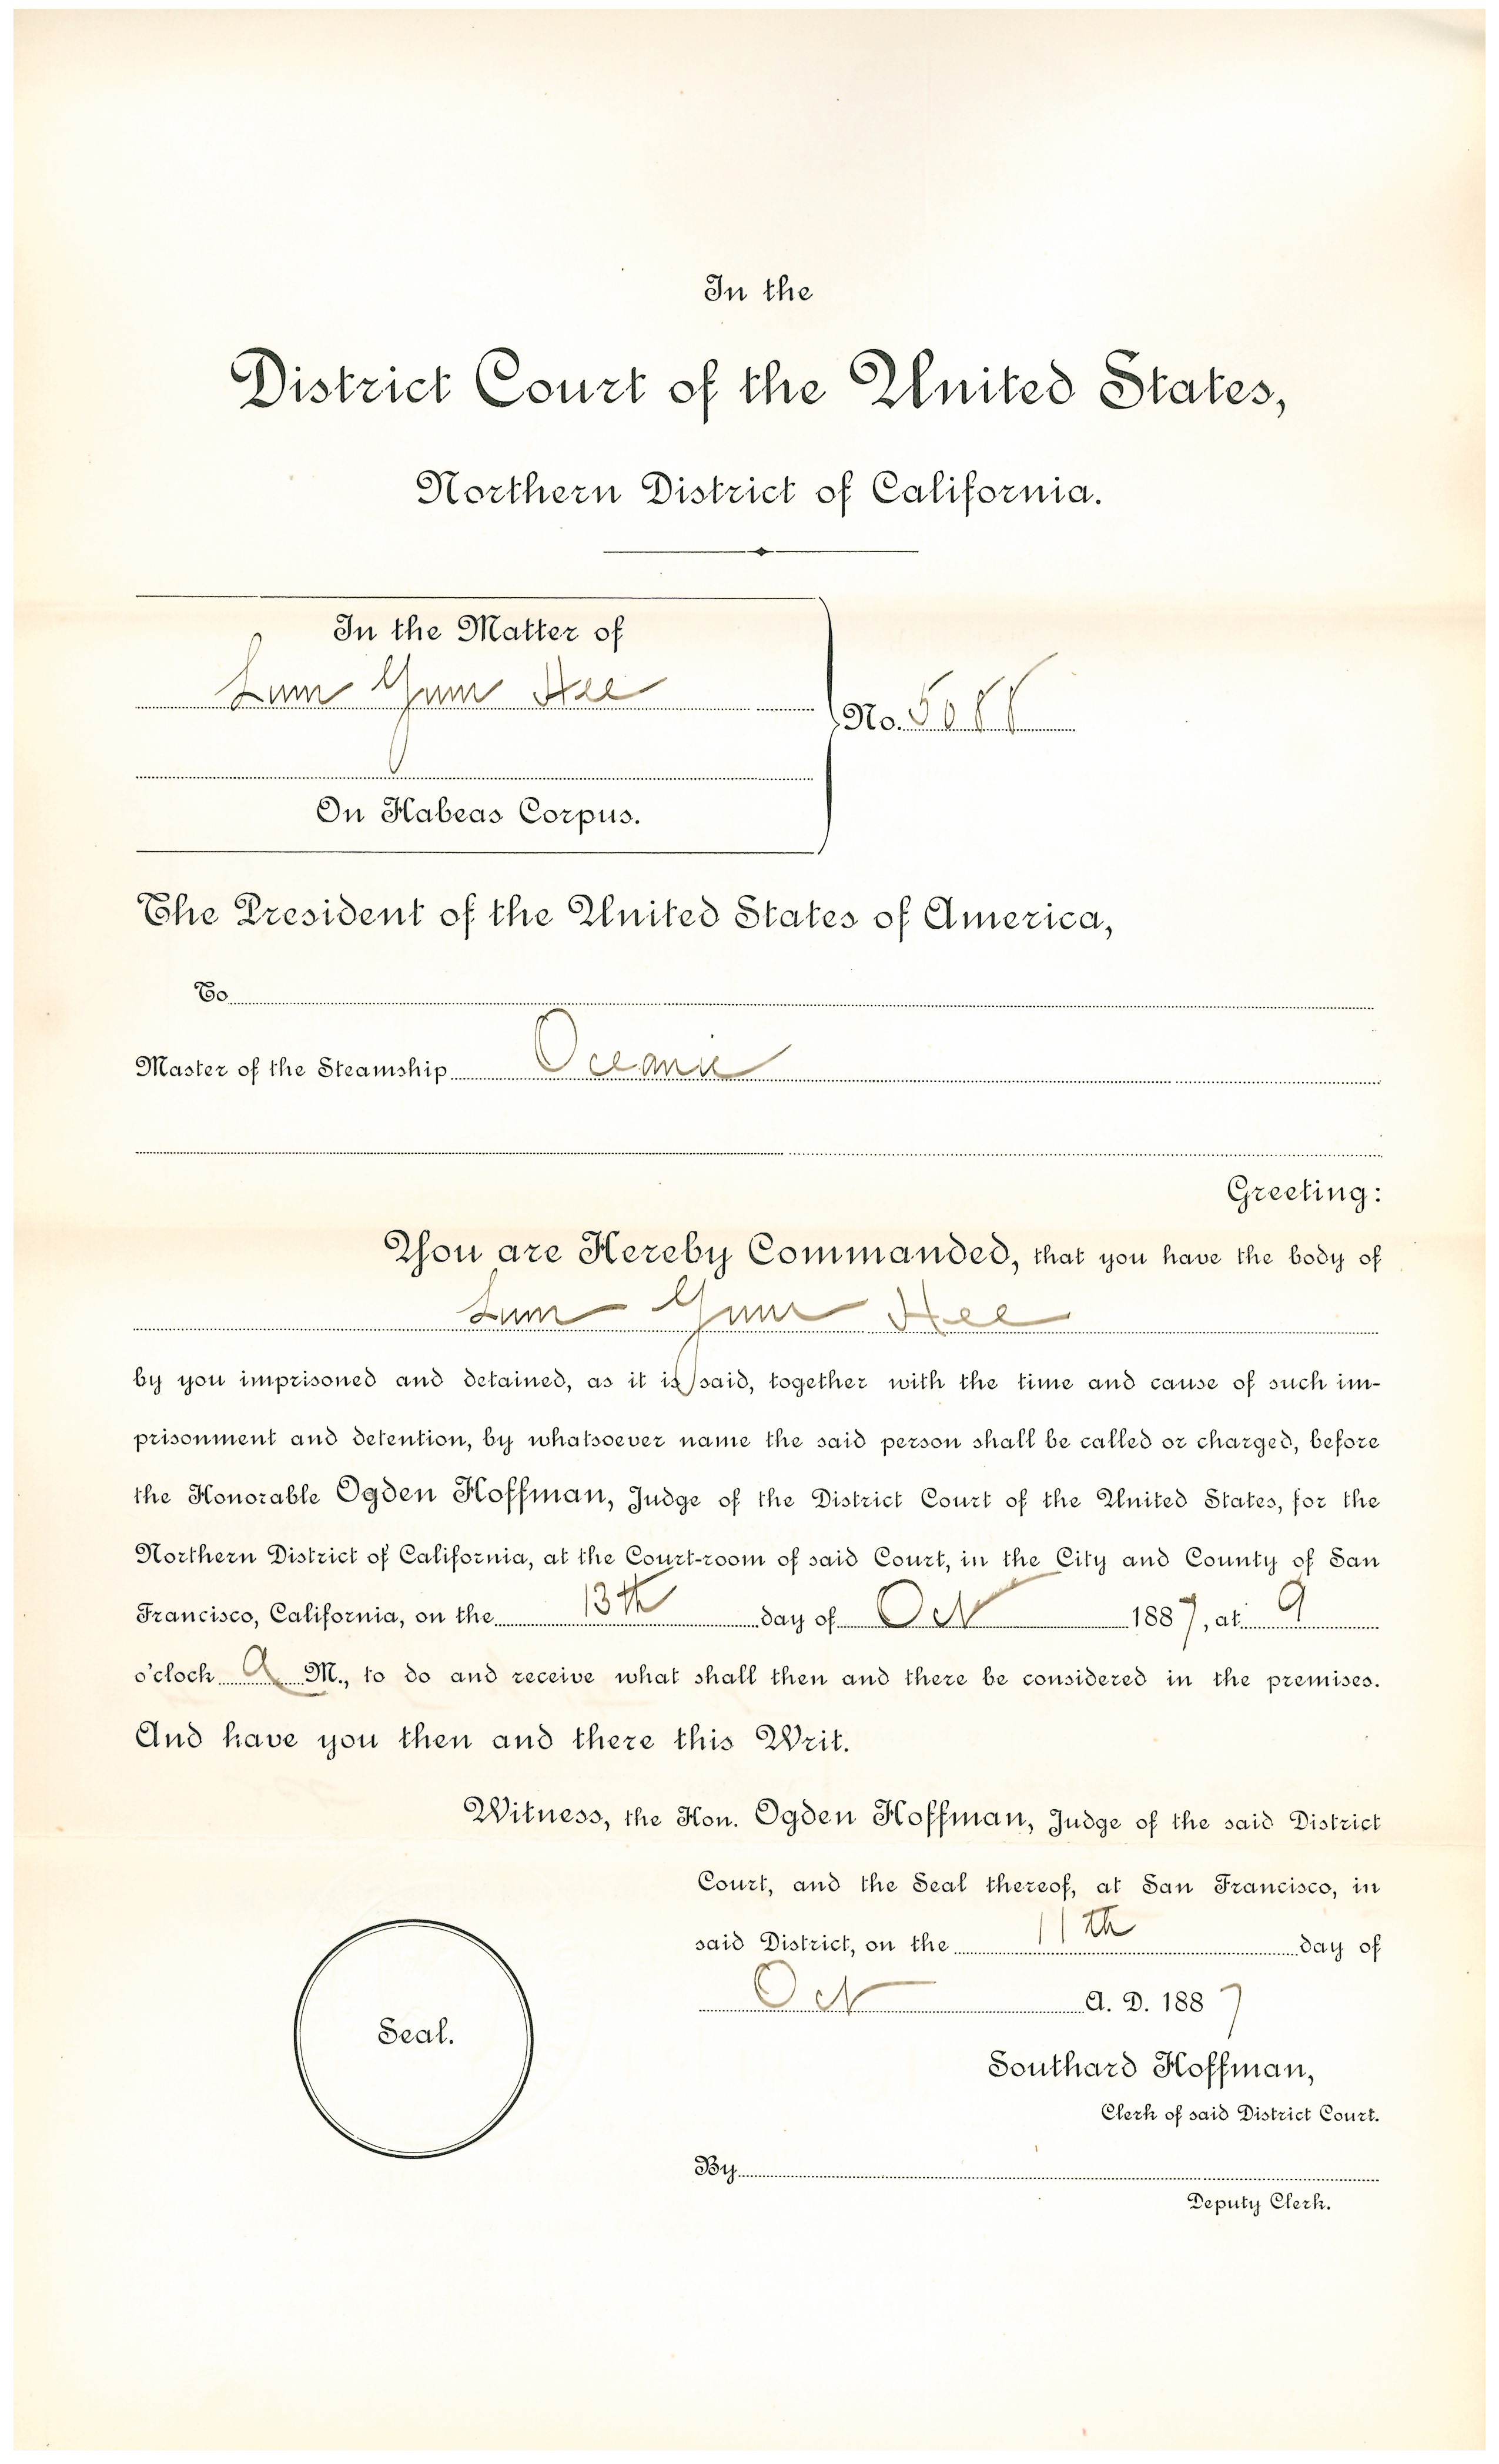 In the
District Court of the United States,
Northern District of California.
In the Matter of
Lum Yum Hee
No. 5088
On Habeas Corpus.
The President of the United States of America,
To
Master of the Steamship Oceanic
Greeting:
You are Hereby Commanded, that you have the body of
Lum Yum Hee
by you imprisoned and detained, as it is said, together with the time and cause of such im-
prisonment and detention, by whatsoever name the said person shall be called or charged, before
the Honorable Ogden Hoffman, Judge of the District Court of the United States, for the
Northern District of California, at the Court-room of said Court, in the City and County of San
Francisco, California, on the 13th day of Oct 1887, at 9
o'clock A M., to do and receive what shall then and there be considered in the premises.
And have you then and there this Writ.
Witness, the Hon. Ogden Hoffman, Judge of the said District
Court, and the Seal thereof, at San Francisco, in
said District, on the 11th day of
Oct A. D. 1887
Seal.
Southard Hoffman,
Clerk of said District Court.
By
Deputy Clerk.